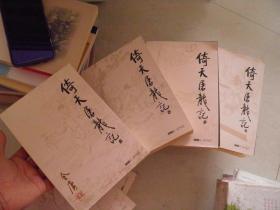 倚天屠龍記
金庸
倚天屠龍記
倚天屠龍記
倚天屠龍記